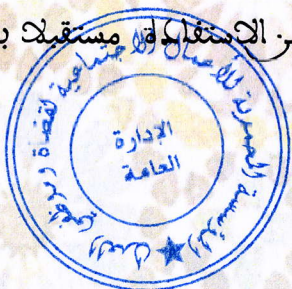 من الاستفادة مستقبلا ب
المؤسسة المحمدية للأعمال الاجتماعية لقضاة وموظفي العدل
الإدارة
العامة